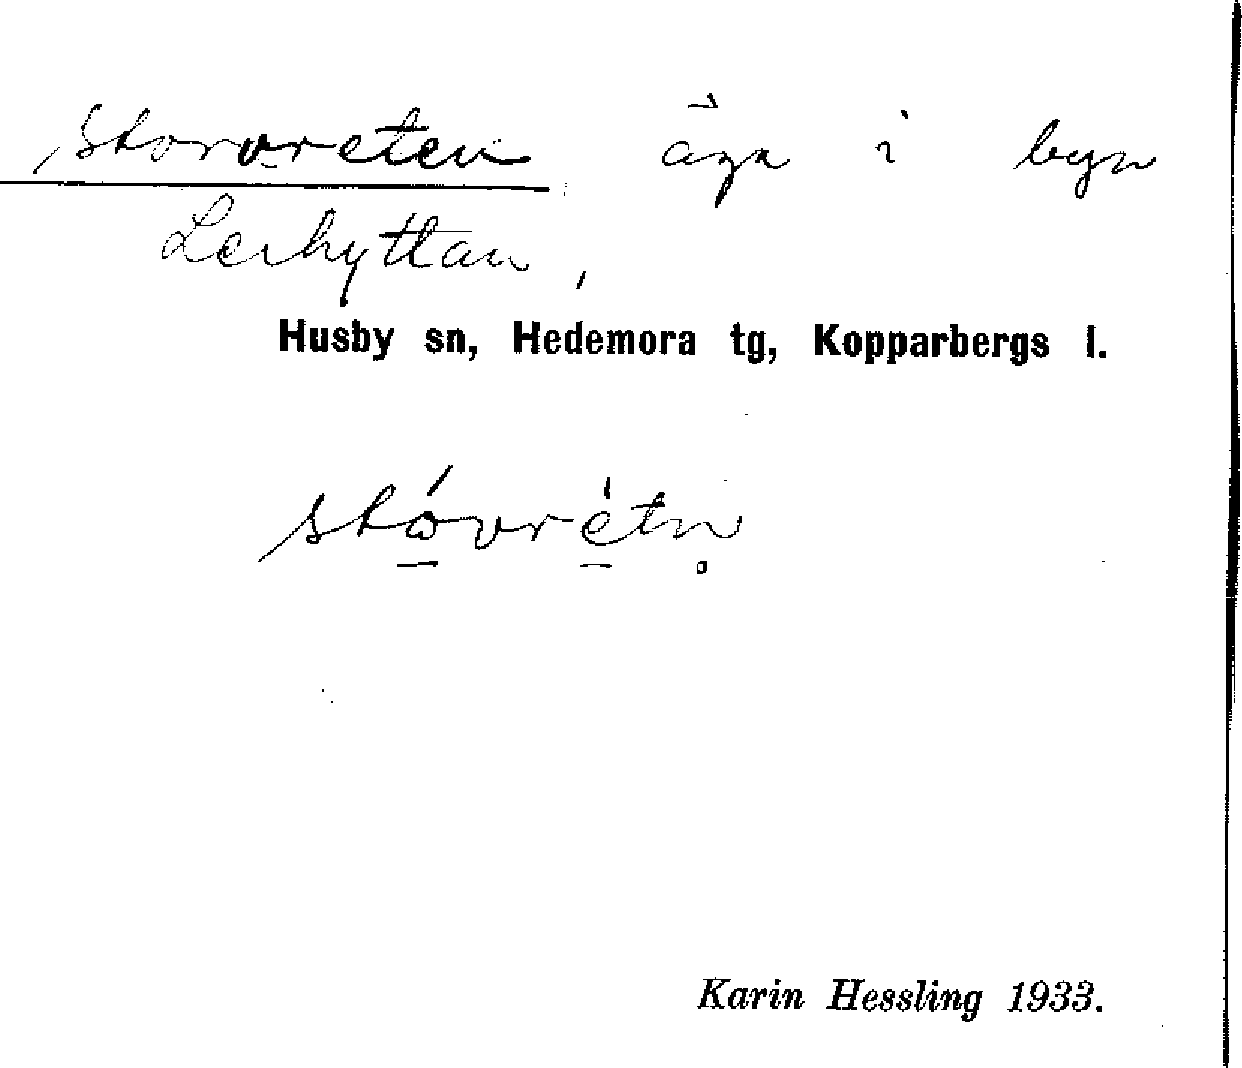 Storvreten äga i byn
Lerhyttan,
Husby sn, Hedemora tg, Kopparbergs l.
stóvrètn̥
Karin Hessling 1933.